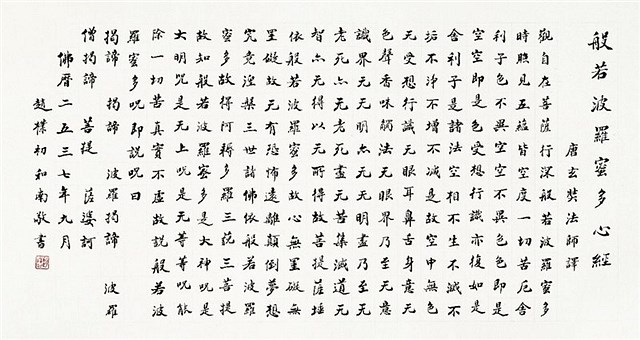 般若波羅蜜多心經
唐玄奘法師譯
觀自在菩薩行深般若波羅蜜多
時照見五蘊皆空度一切苦厄舍
利子色不異空空不異色色即是
空空即是色受想行識亦復如是
舍利子是諸法空相不生不滅不
垢不淨不增不減是故空中無色
无受想行識无眼耳鼻舌身意无
色聲香味觸法无眼界乃至无意
識界无无明亦无无明盡乃至无
老死亦无老死盡无苦集滅道无
智亦无得以无所得故菩提薩埵
依般若波羅蜜多故心無罣礙無
罣礙故无有恐怖遠離顛倒夢想
究竟涅槃三世諸佛依般若波羅
蜜多故得阿耨多羅三藐三菩提
故知般若波羅蜜多是大神呪是
大明呪是无上呪是无等等呪能
除一切苦真實不虛故說般若波
羅蜜多呪即說呪曰
揭諦 揭諦 波羅揭諦 波羅
僧揭諦 菩提 薩婆訶
佛曆二五三七年九月
趙樸初和南敬書